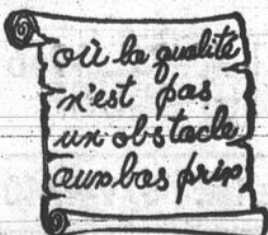 où la qualité
n'est pas
un obstacle
aux bas prix